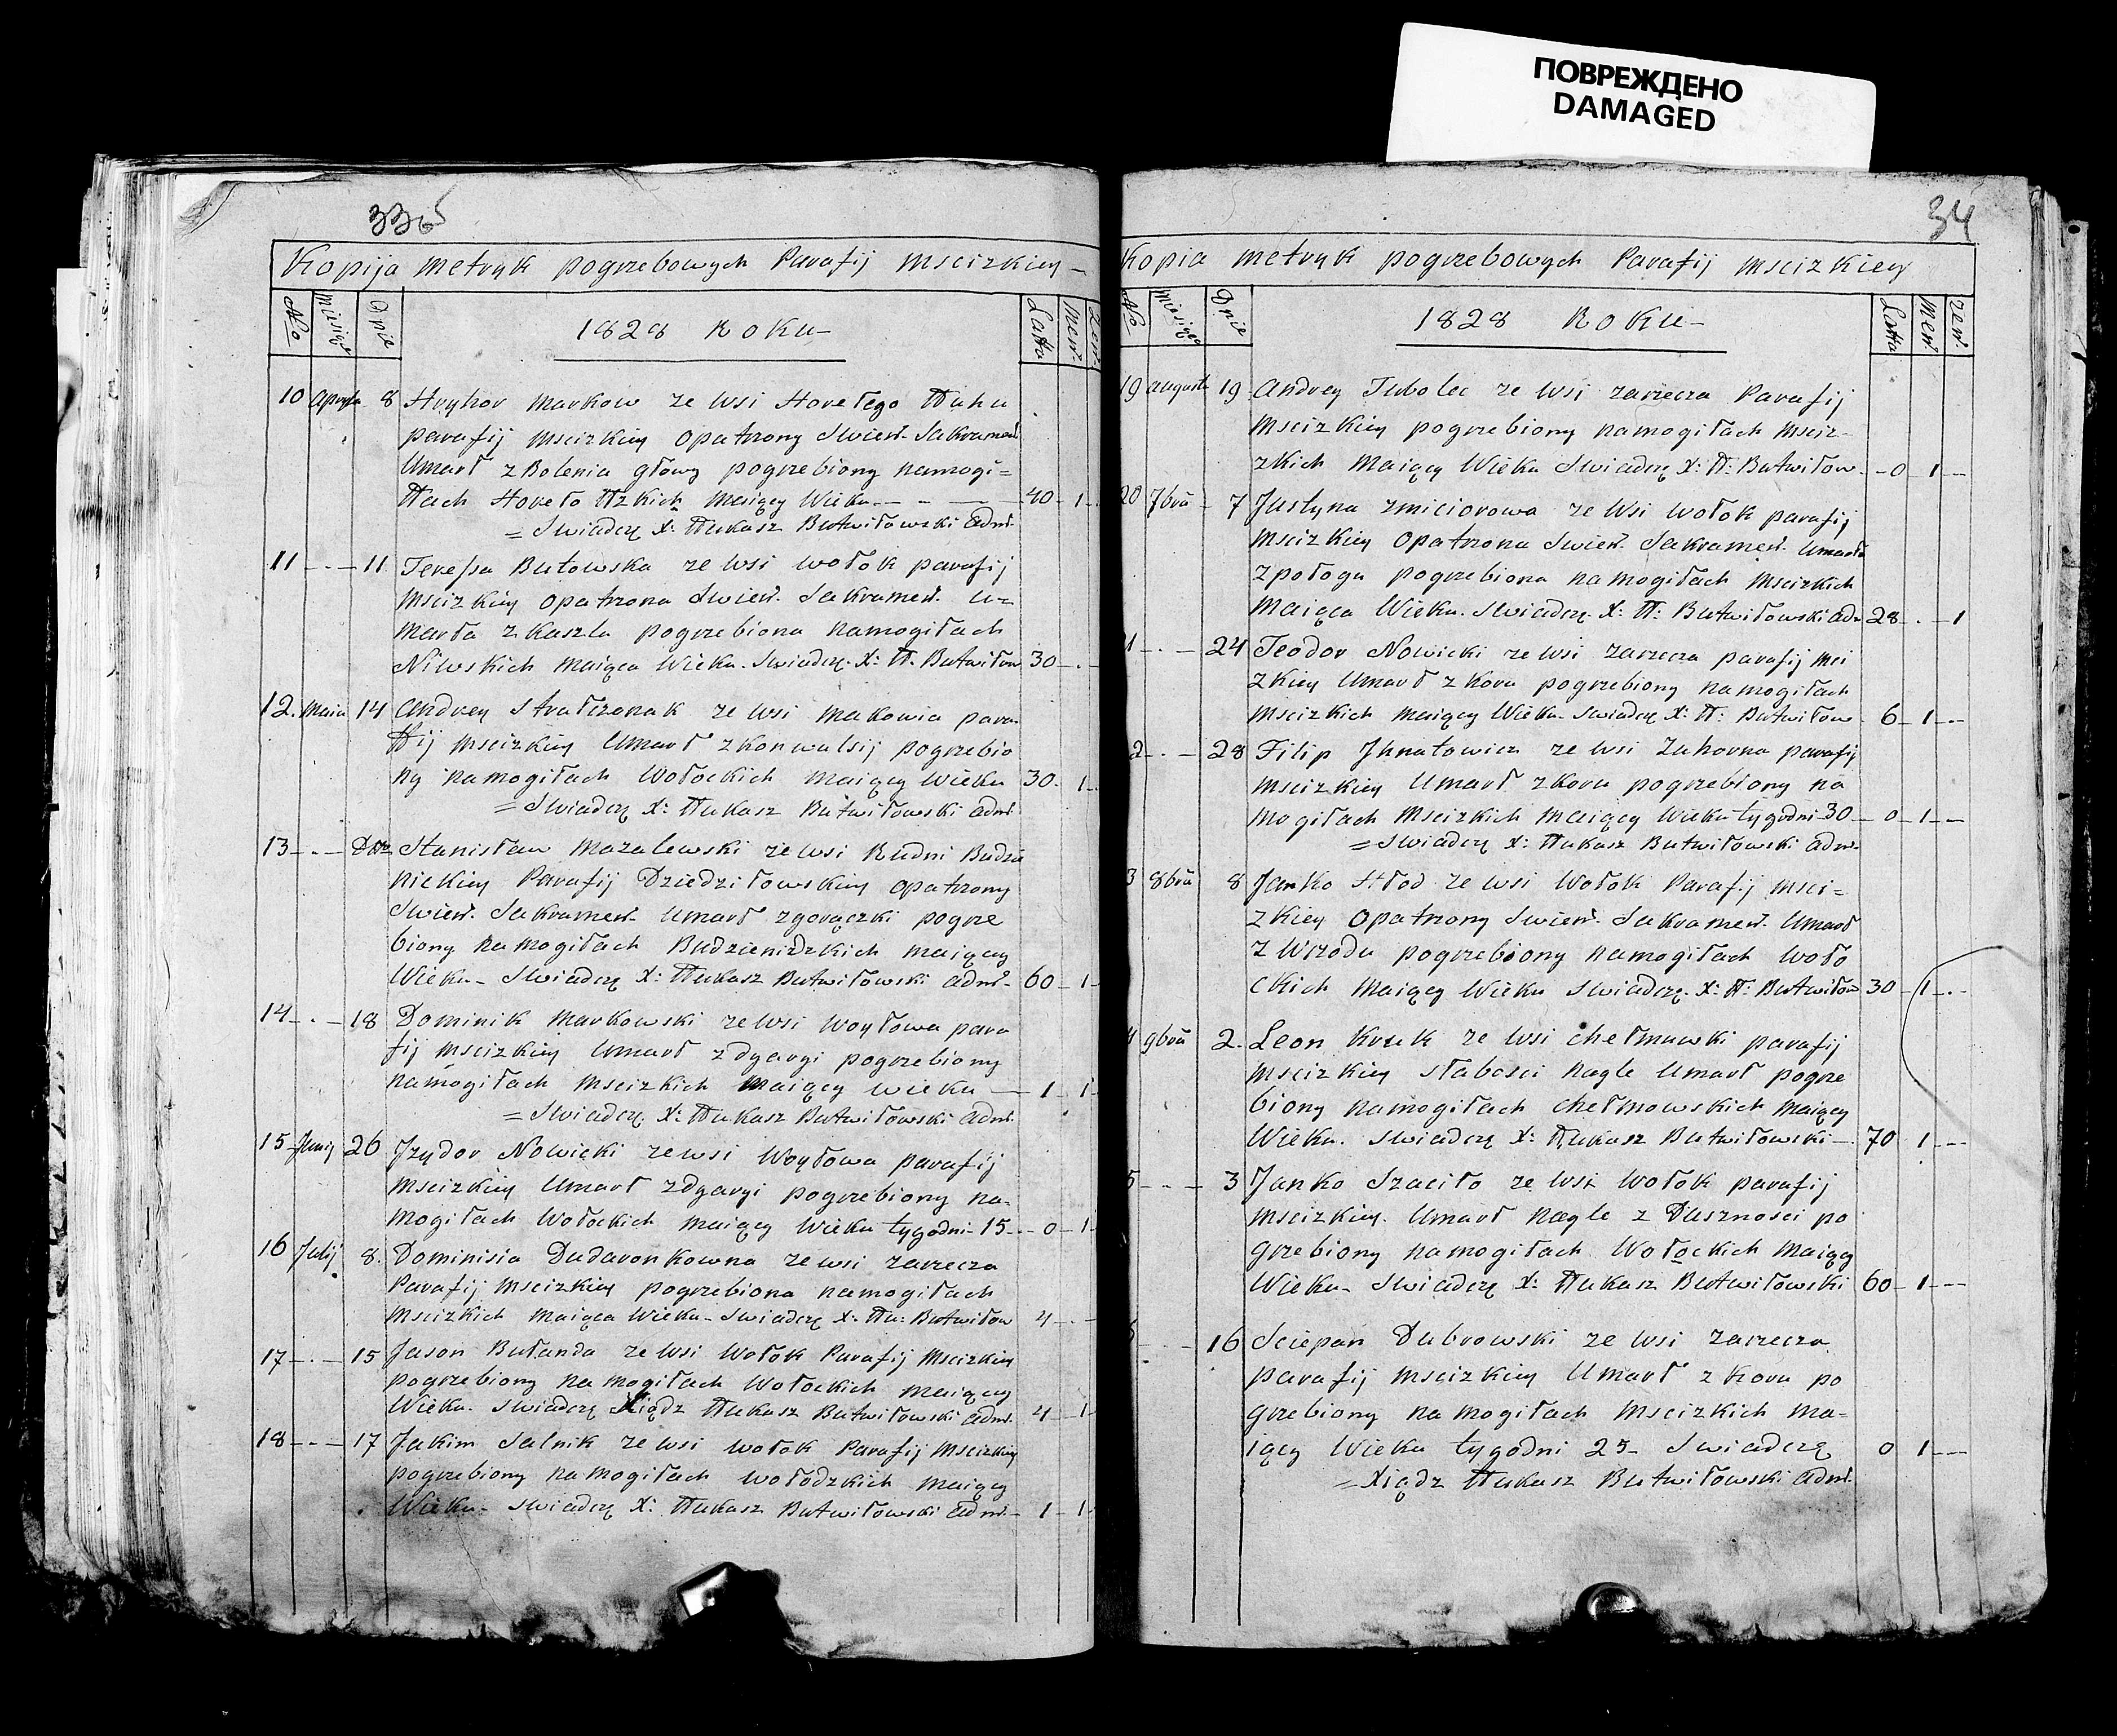 ПОВРЕЖДЕНО
DAMAGED
33
Kopija metryk pogrzebowych Parafij mscizkiey -
No Miesiąc Dnie 1828 Roku- Latta Men. Zen.
10 8 Hryhor Markow ze wsi Horełego Ługu
parafij mscizkiey opatrzony Swień. Sakramen
Umarł z Bolenia głowy pogrzebiony namogi=
łach maiący Wieku - - - 40 - 1 -
= Swiadczę X: Łukasz Butwiłowski adm.
11 - . - 11 Teressa Butowska ze wsi wołok parafij
mscizkiey opatrzona Swień. Sakramen. u=
marła z kaszlu pogrzebiona namogiłach
Niwskich maiąca Wieku. Swiadczę. X: Ł. Butwiłow 30 - . -
12. Maia 14 Andrey Strałczonak ze wsi makowia para
fij mscizkiey Umarł z konwulsij pogrzebio
ny namogiłach Wołockich maiący Wieku 30. 1 -
= Swiadczę X: Łukasz Butwiłowski adm.
13 - . - Stanisław Mazalewski ze wsi Rudni Budzie
nickiey Parafij Dziedziłowskiey opatrzony
Swień. Sakramen. Umarł z gorączki pogrze
biony namogiłach maiący
Wieku - Swiadczę X: Łukasz Butwiłowski adm. - 60 - 1 -
14 - . - 18 Dominik Markowski ze wsi Woytowa para
fij mscizkiey Umarł z dyaryi pogrzebiony
namogiłach mscizkich maiący wieku - 1 - 1
= Swiadczę. X: Łukasz Butwiłowski adm.
15 Junij 26 Jzydor Nowicki ze wsi Woytowa parafij
mscizkiey Umarł z dyaryi pogrzebiony na-
mogiłach Wołockich maiący Wieku tygodni - 15 - 0 - 1
16 Julij 8. Dominisia Dudaronkowna ze wsi zarzecza
Parafij mscizkiey pogrzebiona namogiłach
mscizkich maiąca Wieku - Swiadczę X: Łu: Butwiłow 4 - . -
17 - . - 15 Jason Bułanda ze wsi Wołok Parafij mscizkiey
pogrzebiony namogiłach Wołockich maiący
Wieku - Swiadczę Xiądz Łukasz Butwiłowski adm. 4 - 1 -
18 - . - 17 Jakim Salnik ze wsi wołok Parafij mscizkiey
pogrzebiony namogiłach wołodzkich maiący
Wieku - swiadczę X: Łukasz Butwiłowski adm. - 1 - 1 -
34
Kopia metryk pogrzebowych Parafij mscizkiey
No Miesiąca Dnie 1828 Roku - Latta Men. Zen.
19 august 19 Andrey Tubolec ze wsi zarzecza Parafij
mscizkiey pogrzebiony namogiłach msciz-
zkich maiący Wieku Swiadczę X: Ł: Butwiłow - 0 - 1 -
20 7bra - 7 Justyna zmiciorowa ze Wsi wołok parafij
mscizkiey opatrzona Swień. Sakramen. Umarła
z połogu pogrzebiona namogiłach mscizkich
maiąca Wieku. Swiadczę X: Ł: Butwiłowski ad. 28 - . - 1
1 - . - 24 Teodor Nowicki ze wsi zarzecza parafij msci
zkiey Umarł z koru pogrzebiony namogiłach
mscizkich maiący Wieku - Swiadczę X: Ł: Butwiłow - 6 - 1 - -
2 - . - 28 Filip Jhnatowicz ze wsi parafij
mscizkiey Umarł z koru pogrzebiony na
mogiłach mscizkich maiący Wieku tygodni - 30 - 0 - 1 - -
= Swiadczę X: Łukasz Butwiłowski adm.
3 8bra 8 Janko Hłod ze wsi Wołok Parafij msci=
zkiey opatrzony Swień. Sakramen. Umarł
z Wrzodu pogrzebiony namogiłach woło
ckich maiący Wieku Swiadczę. X: Ł: Butwiłow 30 - 1 - -
4 9bra 2. Leon Kruk ze wsi chełmuwki parafij
mscizkiey słabosci nagle Umarł pogrze
biony namogiłach chełmowskich maiący
Wieku. Swiadczę X: Łukasz Butwiłowski - 70 1 - -
5 - - - 3 Janko Szaciło ze wsi Wołok parafij
mscizkiey. Umarł nagle z Duszności po
grzebiony namogiłach Wołockich maiący
Wieku - Swiadczę X: Łukasz Butwiłowski 60 - 1 - -
- . - 16 Sciepan Dubrowski ze wsi zarzecza
parafij mscizkiey Umarł z koru po
grzebiony namogiłach mscizkich ma=
iący Wieku tygodni 25 - Swiadczę 0 1 - -
= Xiądz Łukasz Butwiłowski adm.